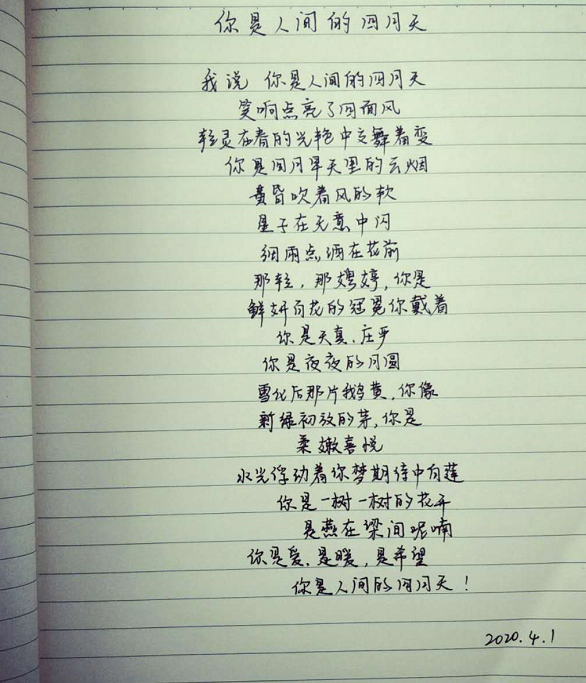 你是人间的四月天
我说 你是人间的四月天
笑响点亮了四面风
轻灵在春的光艳中交舞着变
你是四月早天里的云烟
黄昏吹着风的软
星子在无意中闪
细雨点洒在花前
那轻，那娉婷，你是
鲜妍百花的冠冕你戴着
你是天真、庄严
你是夜夜的月圆
雪化后那片鹅黄，你像
新绿初放的芽，你是
柔嫩喜悦
水光浮动着你梦期待中白莲
你是一树一树的花开
是燕在梁间呢喃
你是爱，是暖，是希望
你是人间的四月天！
2020.4.1